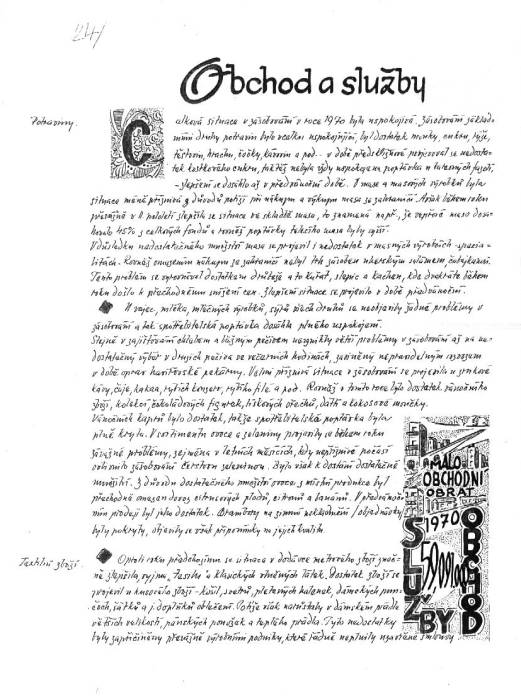 24/
Obchod a služby
Potraviny.
Celková situace v zásobování v roce 1970 byla uspokojivá. Zásobování základ-
ními druhy potravin bylo vcelku uspokojující, byl dostatek mouky, cukru, rýže,
těstovin, hrachu, čočky, kávovin a pod. - v době předsklizňové projevoval se nedosta-
tek kostkového cukru, taktéž nebyla vždy uspokojena poptávka u fazolí,
- zlepšení se dosáhlo až v předvánoční době. U masa a masových výrobků byla
situace méně příznivá z důvodů potíží při nákupu a výkupu masa ze zahraničí. Avšak během roku
převážně v II. pololetí zlepšila se situace ve skladbě masa, to znamená např., že vepřové maso dosa-
hovalo 45% z celkových fondů a rovněž poptávky telecího masa byly vyšší.
V důsledku nedostatečného množství masa se projevil i nedostatek v masných výrobcích - specia-
litách. Rovněž omezením nákupu ze zahraničí nebyl trh zásoben uherským salámem, čabajkami.
Tento problém se vyrovnával dostatkem drůbeže a to kuřat, slepic a kachen, kde dvakráte během
roku došlo k přechodnému snížení cen. Zlepšení situace se projevilo v době předvánoční.
U vajec, mléka, mléčných výrobků, sýrů všech druhů se neobjevily žádné problémy v
zásobování a tak spotřebitelská poptávka dosáhla plného uspokojení.
Stejně v zajišťování chlebem a běžným pečivem nevznikly větší problémy v zásobování až na ne-
dostatečný výběr v druzích pečiva ve večerních hodinách, zaviněný nepravidelným rozvozem
v době oprav havířovské pekárny. Velmi příznivá situace v zásobování se projevila u zrnkové
kávy, čaje, kakaa, rybích konzerv, rybího filé a pod. Rovněž v tomto roce bylo dostatek vánočního
zboží, kolekcí, čokoládových figurek, lískových ořechů, datlí a kokosové moučky.
Vánočních kaprů bylo dostatek, takže spotřebitelská poptávka byla
plně kryta. V sortimentu ovoce a zeleniny projevily se během roku
závažné problémy, zejména v letních měsících, kdy nepříznivé počasí
ovlivnilo zásobování čerstvou zeleninou. Bylo však k dostání dostatečné
množství. Z důvodu dostatečného množství ovoce z místní produkce byl
přechodně omezen dovoz citrusových plodů, citronů a banánů. V předvánoč-
ním prodeji byl jich dostatek. Brambory na zimní uskladnění /objednávky/
byly pokryty, objevily se však připomínky na jejich kvalitu.
MALO-
OBCHODNÍ
OBRAT
1970
OBCHOD
SLUŽBY
Textilní zboží.
Oproti roku předchozímu se situace v dodávce metrového zboží znač-
ně zlepšila, vyjma tesilu a klasických vlněných látek, dostatek zboží se
projevil u kusového zboží - košil, svetrů, pletených halenek, dámských pon-
čoch, šátků a j. doplňků oblečení. Potíže však nastávaly v dámském prádle
větších velikostí, pánských ponožek a teplého prádla. Tyto nedostatky
byly zapříčiněny převážně výrobními podniky, které řádně neplnily uzavřené smlouvy